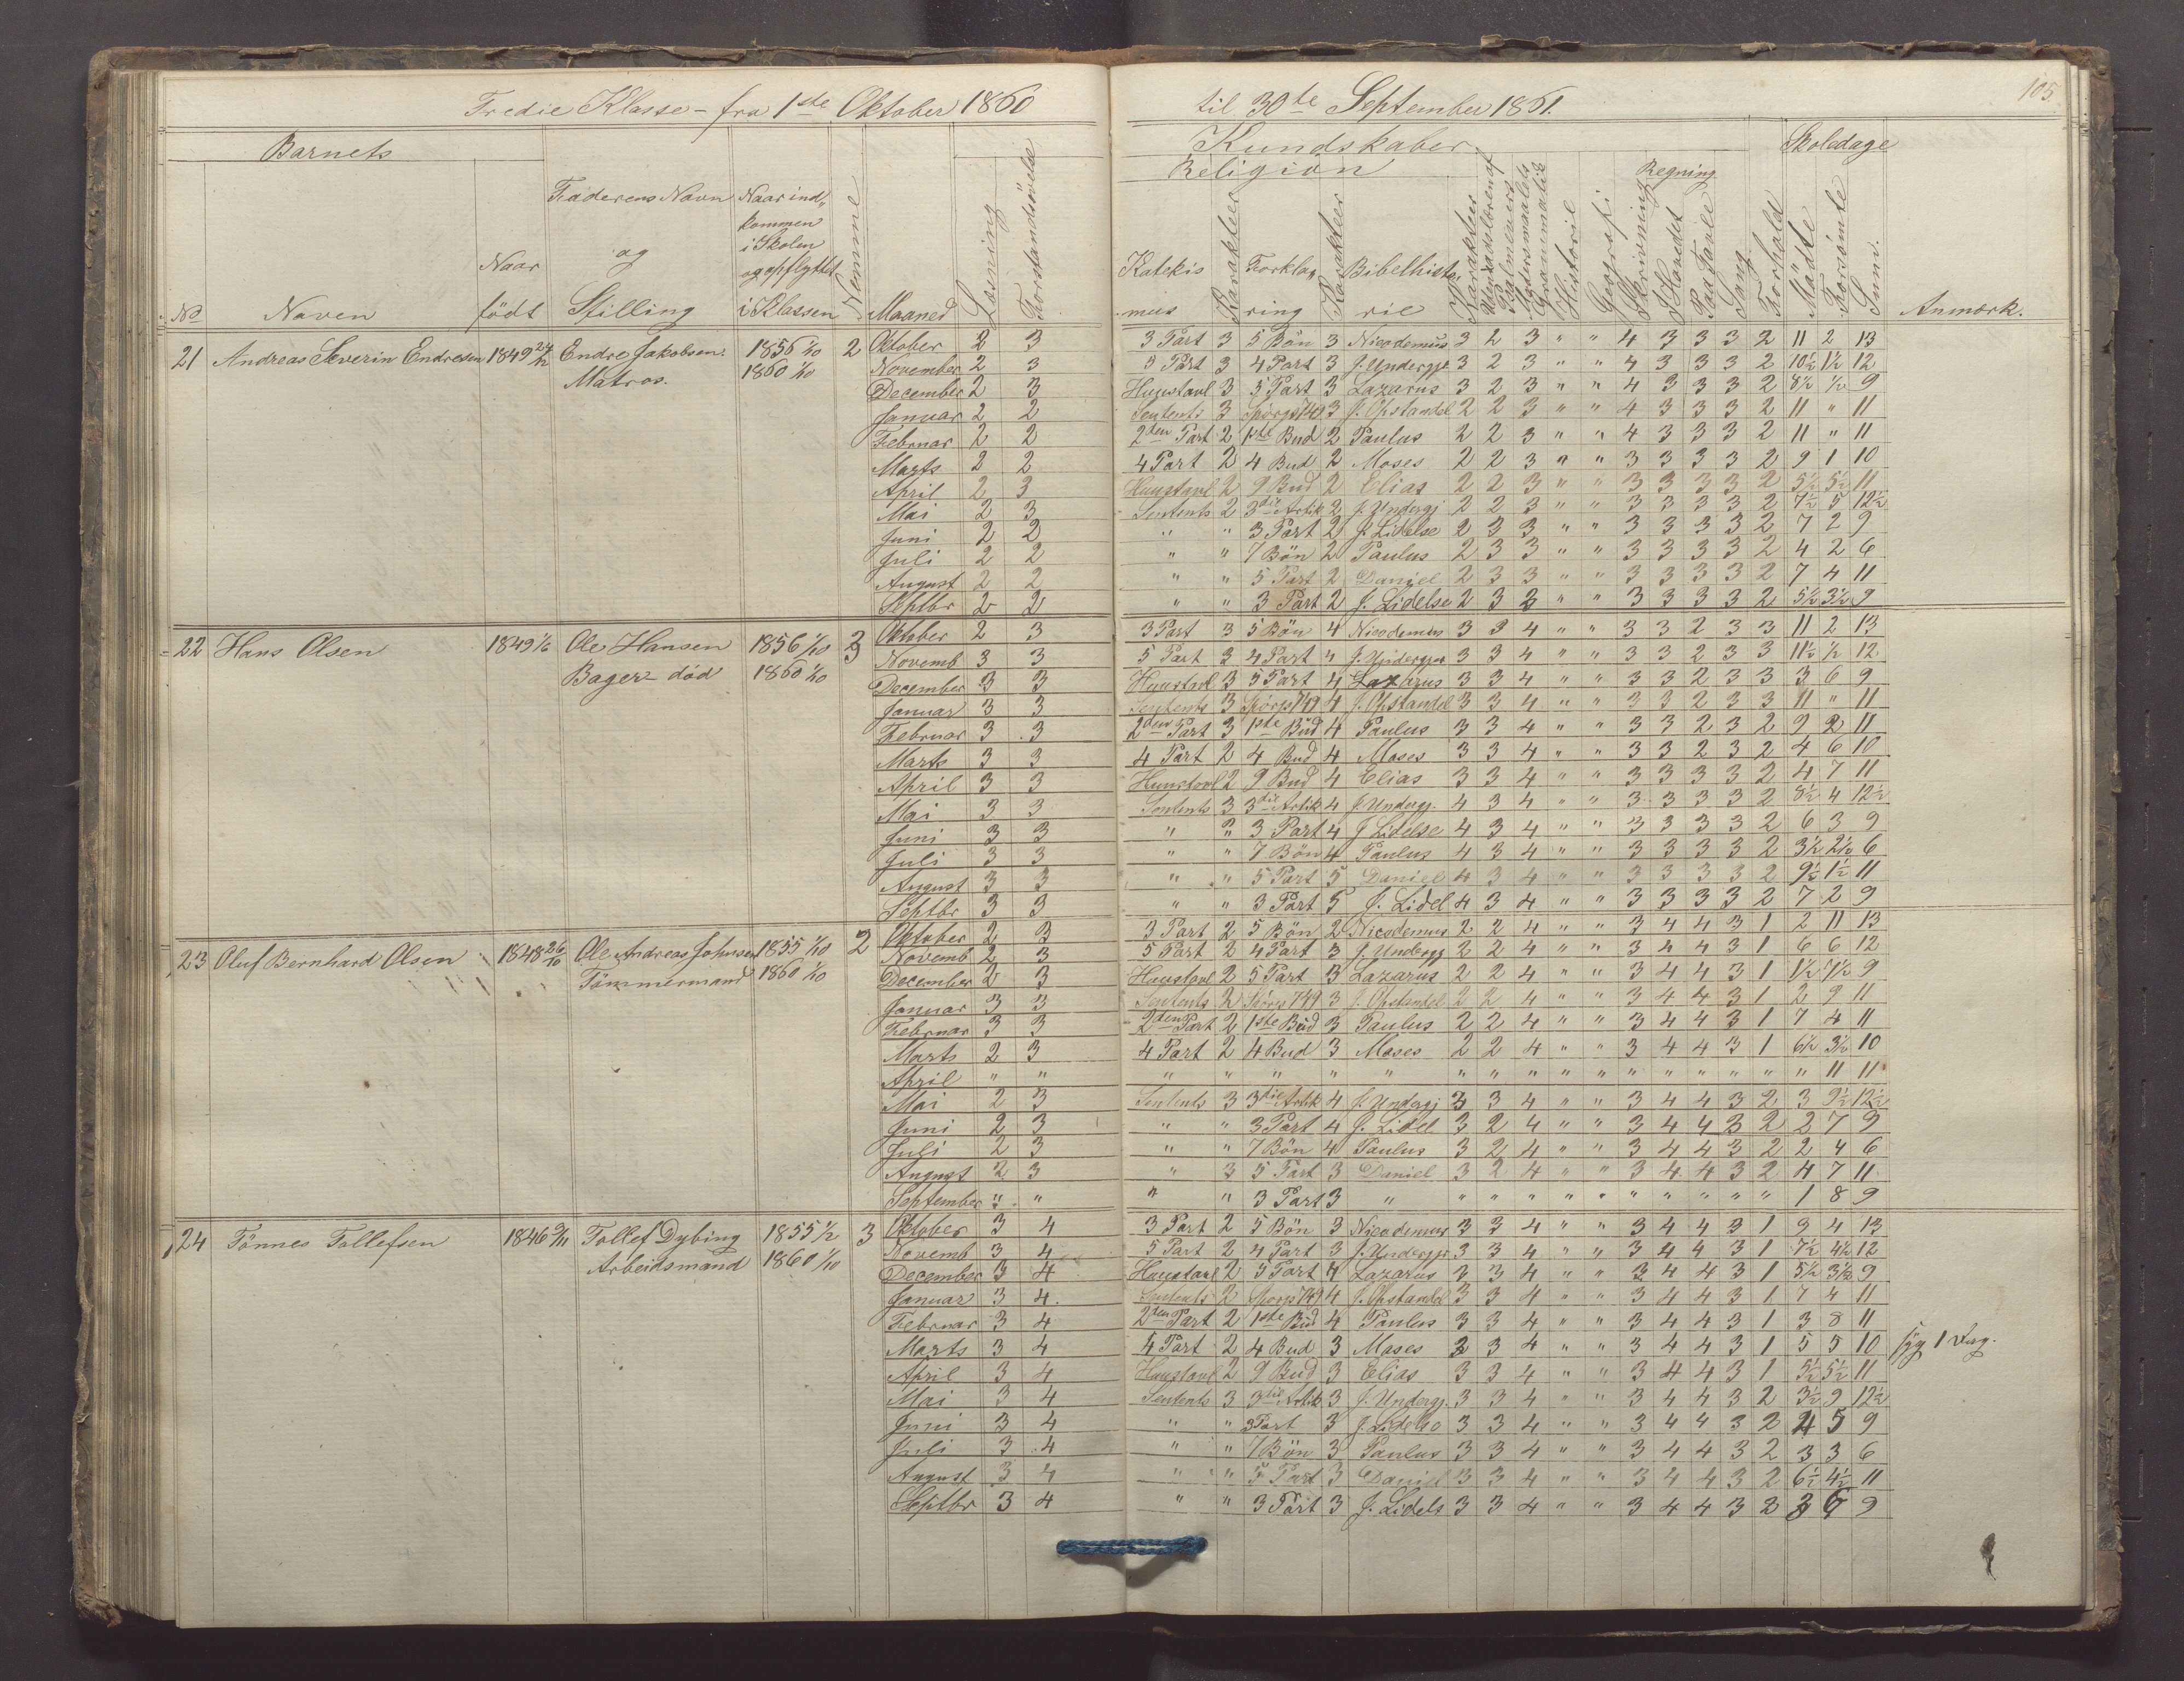 Tredie Klasse - fra 1ste Oktober 1860 til 30te September 1861.
105
Barnets
Kundskaber
Skoledage
Religion
Regning
No Navn Naar født Faderens Navn og Stilling Naar ind- kommen i Skolen og opflyttet i Klassen Nemme Maaned Læsning Forstandsøvelse Katekismus Karakteer Forklaring Karakteer Bibelhistorie Karakteer Udenadslæren af Psalmevers Modersmaalets Grammatik Historie Geografi Skrivning I Hovedet Paa Tavle Sang Forhold Mødte Forsømte Sum. Anmærk.
21 Andreas Severin Endresen 1849 24/12 Endre Jakobsen. 1856 1/10 2 Oktober 2 3 3 Part 3 5 Bøn 3 Nicodemus 3 2 3 " " 4 3 3 3 2 11 2 13
Matros. 1860 1/10 November 2 3 5 Part 3 4 Part 3 J. Undergjr 3 2 3 " " 4 3 3 3 2 10½ 1½ 12
December 2 3 Huustavl 3 5 Part 3 Lazarus 3 2 3 " " 4 3 3 3 2 8½ ½ 9
Januar 2 2 Sentents 3 Spörgs 749 3 J. Opstandel 2 2 3 " " 4 3 3 3 2 11 " 11
Februar 2 2 2den Part 2 1ste Bud 2 Paulus 2 2 3 " " 4 3 3 3 2 11 " 11
Marts 2 2 4 Part 2 4 Bud 2 Moses 2 2 3 " " 3 3 3 3 2 9 1 10
April 2 3 Huustavl 2 9 Bud 2 Elias 2 2 3 " " 3 3 3 3 2 5½ 5½ 11
Mai 2 3 Sentents 2 3die Artik 2 J. Undergj 2 2 3 " " 3 3 3 3 2 7½ 5 12½
Juni 2 2 " " 3 Part 2 J. Lidelse 2 3 3 " " 3 3 3 3 2 7 2 9
Juli 2 2 " " 7 Bön 2 Paulus 2 3 3 " " 3 3 3 3 2 4 2 6
August 2 2 " " 5 Part 2 Daniel 2 3 3 " " 3 3 3 3 2 7 4 11
Septbr 2 2 " " 3 Part 2 J. Lidelse 2 3 3 " " 3 3 3 3 2 5½ 3½ 9
22 Hans Olsen 1849 1/6 Ole Hansen 1856 1/10 3 Oktober 2 3 3 Part 3 5 Bön 4 Nicodemus 3 3 4 " " 3 3 2 3 3 11 2 13
Bager - död 1860 1/10 Novemb 3 3 5 Part 3 4 Part 4 J. Undergjr 3 3 4 " " 3 3 2 3 3 11½ ½ 12
December 3 3 Huustavl 3 5 Part 4 Lazarus 3 3 4 " " 3 3 2 3 3 3 6 9
Januar 3 3 Sentents 3 Spörgs 749 4 J. Opstandel 3 3 4 " " 3 3 2 3 3 11 " 11
Februar 3 3 2den Part 3 1ste Bud 4 Paulus 3 3 4 " " 3 3 2 3 2 9 2 11
Marts 3 3 4 Part 2 4 Bud 4 Moses 3 3 4 " " 3 3 2 3 2 4 6 10
April 3 3 Huustavl 2 9 Bud 4 Elias 3 3 4 " " 3 3 3 3 2 4 7 11
Mai 3 3 Sentents 3 3die Artik 4 J. Undergj. 4 3 4 " " 3 3 3 3 2 8½ 4 12½
Juni 3 3 " " 3 Part 4 J Lidelse 4 3 4 " " 3 3 3 3 2 6 3 9
Juli 3 3 " " 7 Bön 4 Paulus 4 3 4 " " 3 3 3 3 2 3½ 2½ 6
August 3 3 " " 5 Part 5 Daniel 4 3 4 " " 3 3 3 3 2 9½ 1½ 11
Septbr 3 3 " " 3 Part 5 J. Lidel 4 3 4 " " 3 3 3 3 2 7 2 9
23 Oluf Bernhard Olsen 1848 26/10 Ole Andreas Johnsen 1855 1/10 2 Oktober 2 3 3 Part 2 5 Bön 2 Nicodemus 2 2 4 " " 3 4 4 3 1 2 11 13
Tömmermand 1860 1/10 Novemb 2 3 5 Part 2 4 Part 3 J. Undergj 2 2 4 " " 3 4 4 3 1 6 6 12
December 2 3 Huustavl 2 5 Part 3 Lazarus 2 2 4 " " 3 4 4 3 1 1½ 7½ 9
Januar 3 3 Sentents 2 Spörgs 749 3 J. Opstandel 2 2 4 " " 3 4 4 3 1 2 9 11
Februar 3 3 2den Part 2 1ste Bud 3 Paulus 2 2 4 " " 3 4 4 3 1 7 4 11
Marts 2 3 4 Part 2 4 Bud 3 Moses 2 2 4 " " 3 4 4 3 1 6½ 3½ 10
April " " " " " " " " " " " " " " " " " " 11 11
Mai 2 3 Sentents 3 3die Artik 4 J. Undergj 3 3 4 " " 3 4 4 3 2 3 9½ 12½
Juni 2 3 " " 3 Part 4 J. Lidel 3 2 4 " " 3 4 4 3 2 2 7 9
Juli 2 3 " " 7 Bön 4 Paulus 3 2 4 " " 3 4 4 3 2 2 4 6
August 2 3 " 3 5 Part 3 Daniel 3 2 4 " " 3 4 4 3 2 4 7 11
September " " " " 3 Part 3 " " " " " " " " " " " 1 8 9
24 Tönnes Tollefsen 1846 9/11 Tollef Dybing 1855 1/2 3 Oktober 3 4 3 Part 2 5 Bön 3 Nicodemus 3 3 4 " " 3 4 4 3 1 9 4 13
Arbeidsmand 1860 1/10 Novemb 3 4 5 Part 2 4 Part 3 J. Undergjr 3 3 4 " " 3 4 4 3 1 7½ 4½ 12
December 3 4 Huustavl 2 5 Part 4 Lazarus 3 3 4 " " 3 4 4 3 1 5½ 3½ 9
Januar 3 4. Sentents 2 Spörgs 749 4 J. Opstandel 3 3 4 " " 3 4 4 3 1 7 4 11
Februar 3 4 2den Part 2 1ste Bud 4 Paulus 3 3 4 " " 3 4 4 3 1 3 8 11
Marts 3 4 4 Part 2 4 Bud 3 Moses 3 3 4 " " 3 4 4 3 1 5 5 10 syg 1 Dag.
April 3 4 Huustavl 2 9 Bud 3 Elias 3 3 4 " " 3 4 4 3 1 5½ 5½ 11
Mai 3 4 Sentents 3 3die Artik 3 J. Undergj. 3 3 4 " " 3 4 4 3 2 3½ 9 12½
Juni 3 4 " " 3 Part 3 J. Lidelse 3 3 4 " " 3 4 4 3 2 4 5 9
Juli 3 4 " " 7 Bön 3 Paulus 3 3 4 " " 3 4 4 3 2 3 3 6
August 3 4 " " 5 Part 3 Daniel 3 3 4 " " 3 4 4 3 2 6½ 4½ 11
Septbr 3 4 " " 3 Part 3 J. Lidels 3 3 4 " " 3 4 4 3 2 3 6 9